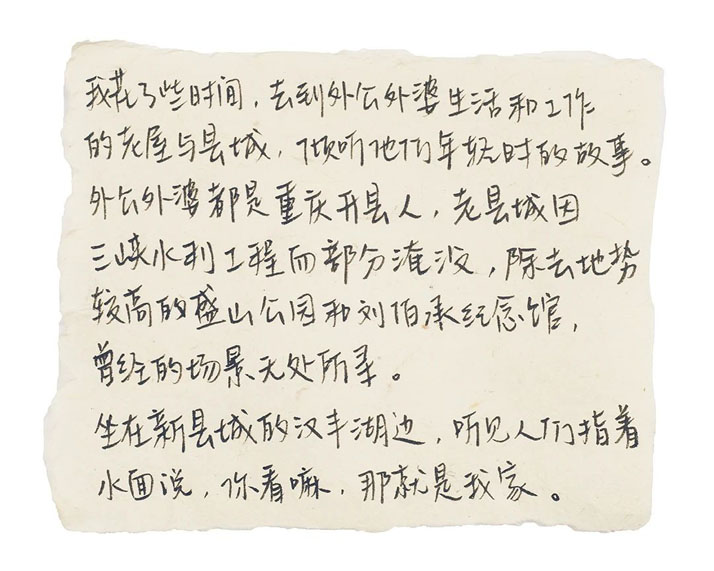 我花了些时间，去到外公外婆生活和工作
的老屋与县城，倾听他们年轻时的故事。
外公外婆都是重庆开县人，老县城因
三峡水利工程而部分淹没，除去地势
较高的盛山公园和刘伯承纪念馆，
曾经的场景无处所寻。
坐在新县城的汉丰湖边，听见人们指着
水面说，你看嘛，那就是我家。